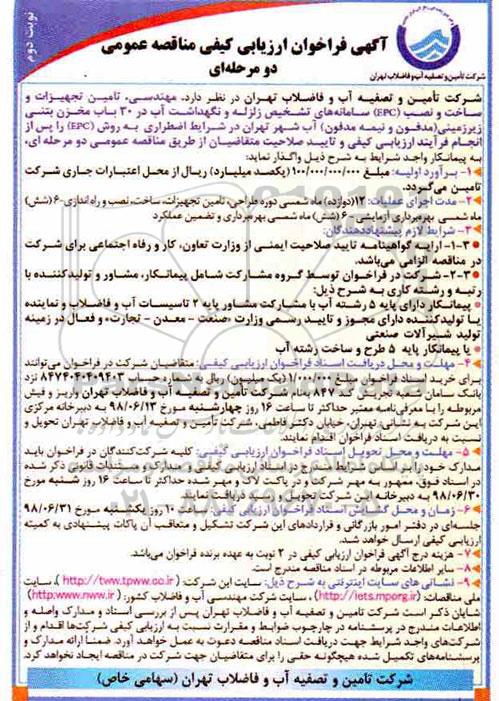 نوبت دوم
آگهی فراخوان ارزیابی کیفی مناقصه عمومی
دو مرحله‌ای
شرکت تأمین و تصفیه آب و فاضلاب تهران
شرکت تأمین و تصفیه آب و فاضلاب تهران در نظر دارد، مهندسی، تامین تجهیزات و
ساخت و نصب (EPC) سامانه‌های تشخیص زلزله و نگهداشت آب در ۳۰ باب مخزن بتنی
زیرزمینی(مدفون و نیمه مدفون) آب شهر تهران در شرایط اضطراری به روش (EPC) را پس از
انجام فرآیند ارزیابی کیفی و تایید صلاحیت متقاضیان از طریق مناقصه عمومی دو مرحله ای،
به پیمانکار واجد شرایط به شرح ذیل واگذار نماید:
۱- برآورد اولیه: مبلغ ۱۰۰/۰۰۰/۰۰۰/۰۰۰ (یکصد میلیارد) ریال از محل اعتبارات جاری شرکت
تامین می‌گردد.
۲- مدت اجرای عملیات: ۱۲(دوازده) ماه شمسی دوره طراحی، تامین تجهیزات، ساخت، نصب و راه اندازی-۶ (شش)
ماه شمسی بهره‌برداری آزمایشی - ۶ (شش) ماه شمسی بهره‌برداری و تضمین عملکرد
۳- شرایط لازم پیشنهاددهندگان:
۱-۳- ارایه گواهینامه تایید صلاحیت ایمنی از وزارت تعاون، کار و رفاه اجتماعی برای شرکت
در مناقصه الزامی می‌باشد.
۲-۳- شرکت در فراخوان توسط گروه مشارکت شامل پیمانکار، مشاور و تولیدکننده با
رتبه و رشته کاری به شرح ذیل:
پیمانکار دارای پایه ۵ رشته آب با مشارکت مشاور پایه ۲ تاسیسات آب و فاضلاب و نماینده
یا تولیدکننده دارای مجوز و تایید رسمی وزارت «صنعت - معدن - تجارت» و فعال در زمینه
تولید شیرآلات صنعتی
یا پیمانکار پایه ۵ طرح و ساخت رشته آب
۴- مهلت و محل دریافت اسناد فراخوان ارزیابی کیفی: متقاضیان شرکت در فراخوان می‌توانند
برای خرید اسناد فراخوان مبلغ ۱/۰۰۰/۰۰۰ (یک میلیون) ریال به شماره حساب نزد
بانک سامان شعبه تجریش کد ۸۴۷ بنام شرکت تأمین و تصفیه آب و فاضلاب تهران واریز و فیش
مربوطه را با معرفی‌نامه معتبر حداکثر تا ساعت ۱۶ روز چهارشنبه مورخ ۹۸/۰۶/۱۳ به دبیرخانه مرکزی
این شرکت به نشانی: تهران، خیابان دکتر فاطمی، شرکت تأمین و تصفیه آب و فاضلاب تهران تحویل و
نسبت به دریافت اسناد فراخوان اقدام نمایند.
۵- مهلت و محل تحویل اسناد فراخوان ارزیابی کیفی: کلیه شرکت‌کنندگان در فراخوان باید
مدارک خود را بر اساس شرایط مندرج در اسناد ارزیابی کیفی و مدارک و مستندات قانونی ذکر شده
در اسناد فوق ممهور به مهر شرکت و در پاکت لاک و مهر شده حداکثر تا ساعت ۱۶ روز شنبه مورخ
۹۸/۰۶/۳۰ به دبیرخانه این شرکت تحویل و رسید دریافت نمایند.
۶- زمان و محل گشایش اسناد فراخوان ارزیابی کیفی: ساعت ۱۰ روز یکشنبه مورخ ۹۸/۰۶/۳۱
جلسه‌ای در دفتر امور بازرگانی و قراردادهای این شرکت تشکیل و متعاقب آن پاکات پیشنهادی به کمیته
ارزیابی کیفی ارسال خواهد شد.
۷- هزینه درج آگهی فراخوان ارزیابی کیفی در ۲ نوبت به عهده برنده فراخوان می‌باشد.
۸- سایر اطلاعات مربوطه در اسناد مناقصه مندرج است.
۹- نشانی های سایت اینترنتی به شرح ذیل: سایت این شرکت: (http://tww.tpww.co.ir)، سایت
ملی مناقصات: (http://iets.mporg.ir)، سایت شرکت مهندسی آب و فاضلاب کشور: (http:www.nww.ir)
شایان ذکر است شرکت تامین و تصفیه آب و فاضلاب تهران پس از بررسی اسناد و مدارک واصله و
اطلاعات مندرج در پرسشنامه در چارچوب ضوابط و مقررات نسبت به ارزیابی کیفی شرکت‌ها اقدام و از
شرکت‌های واجد شرایط جهت دریافت اسناد مناقصه دعوت به عمل خواهد آورد. ضمناً ارائه مدارک و
پرسشنامه‌های تکمیل شده هیچگونه حقی را برای متقاضیان جهت شرکت در مناقصه ایجاد نخواهد کرد
شرکت تامین و تصفیه آب و فاضلاب تهران (سهامی خاص)